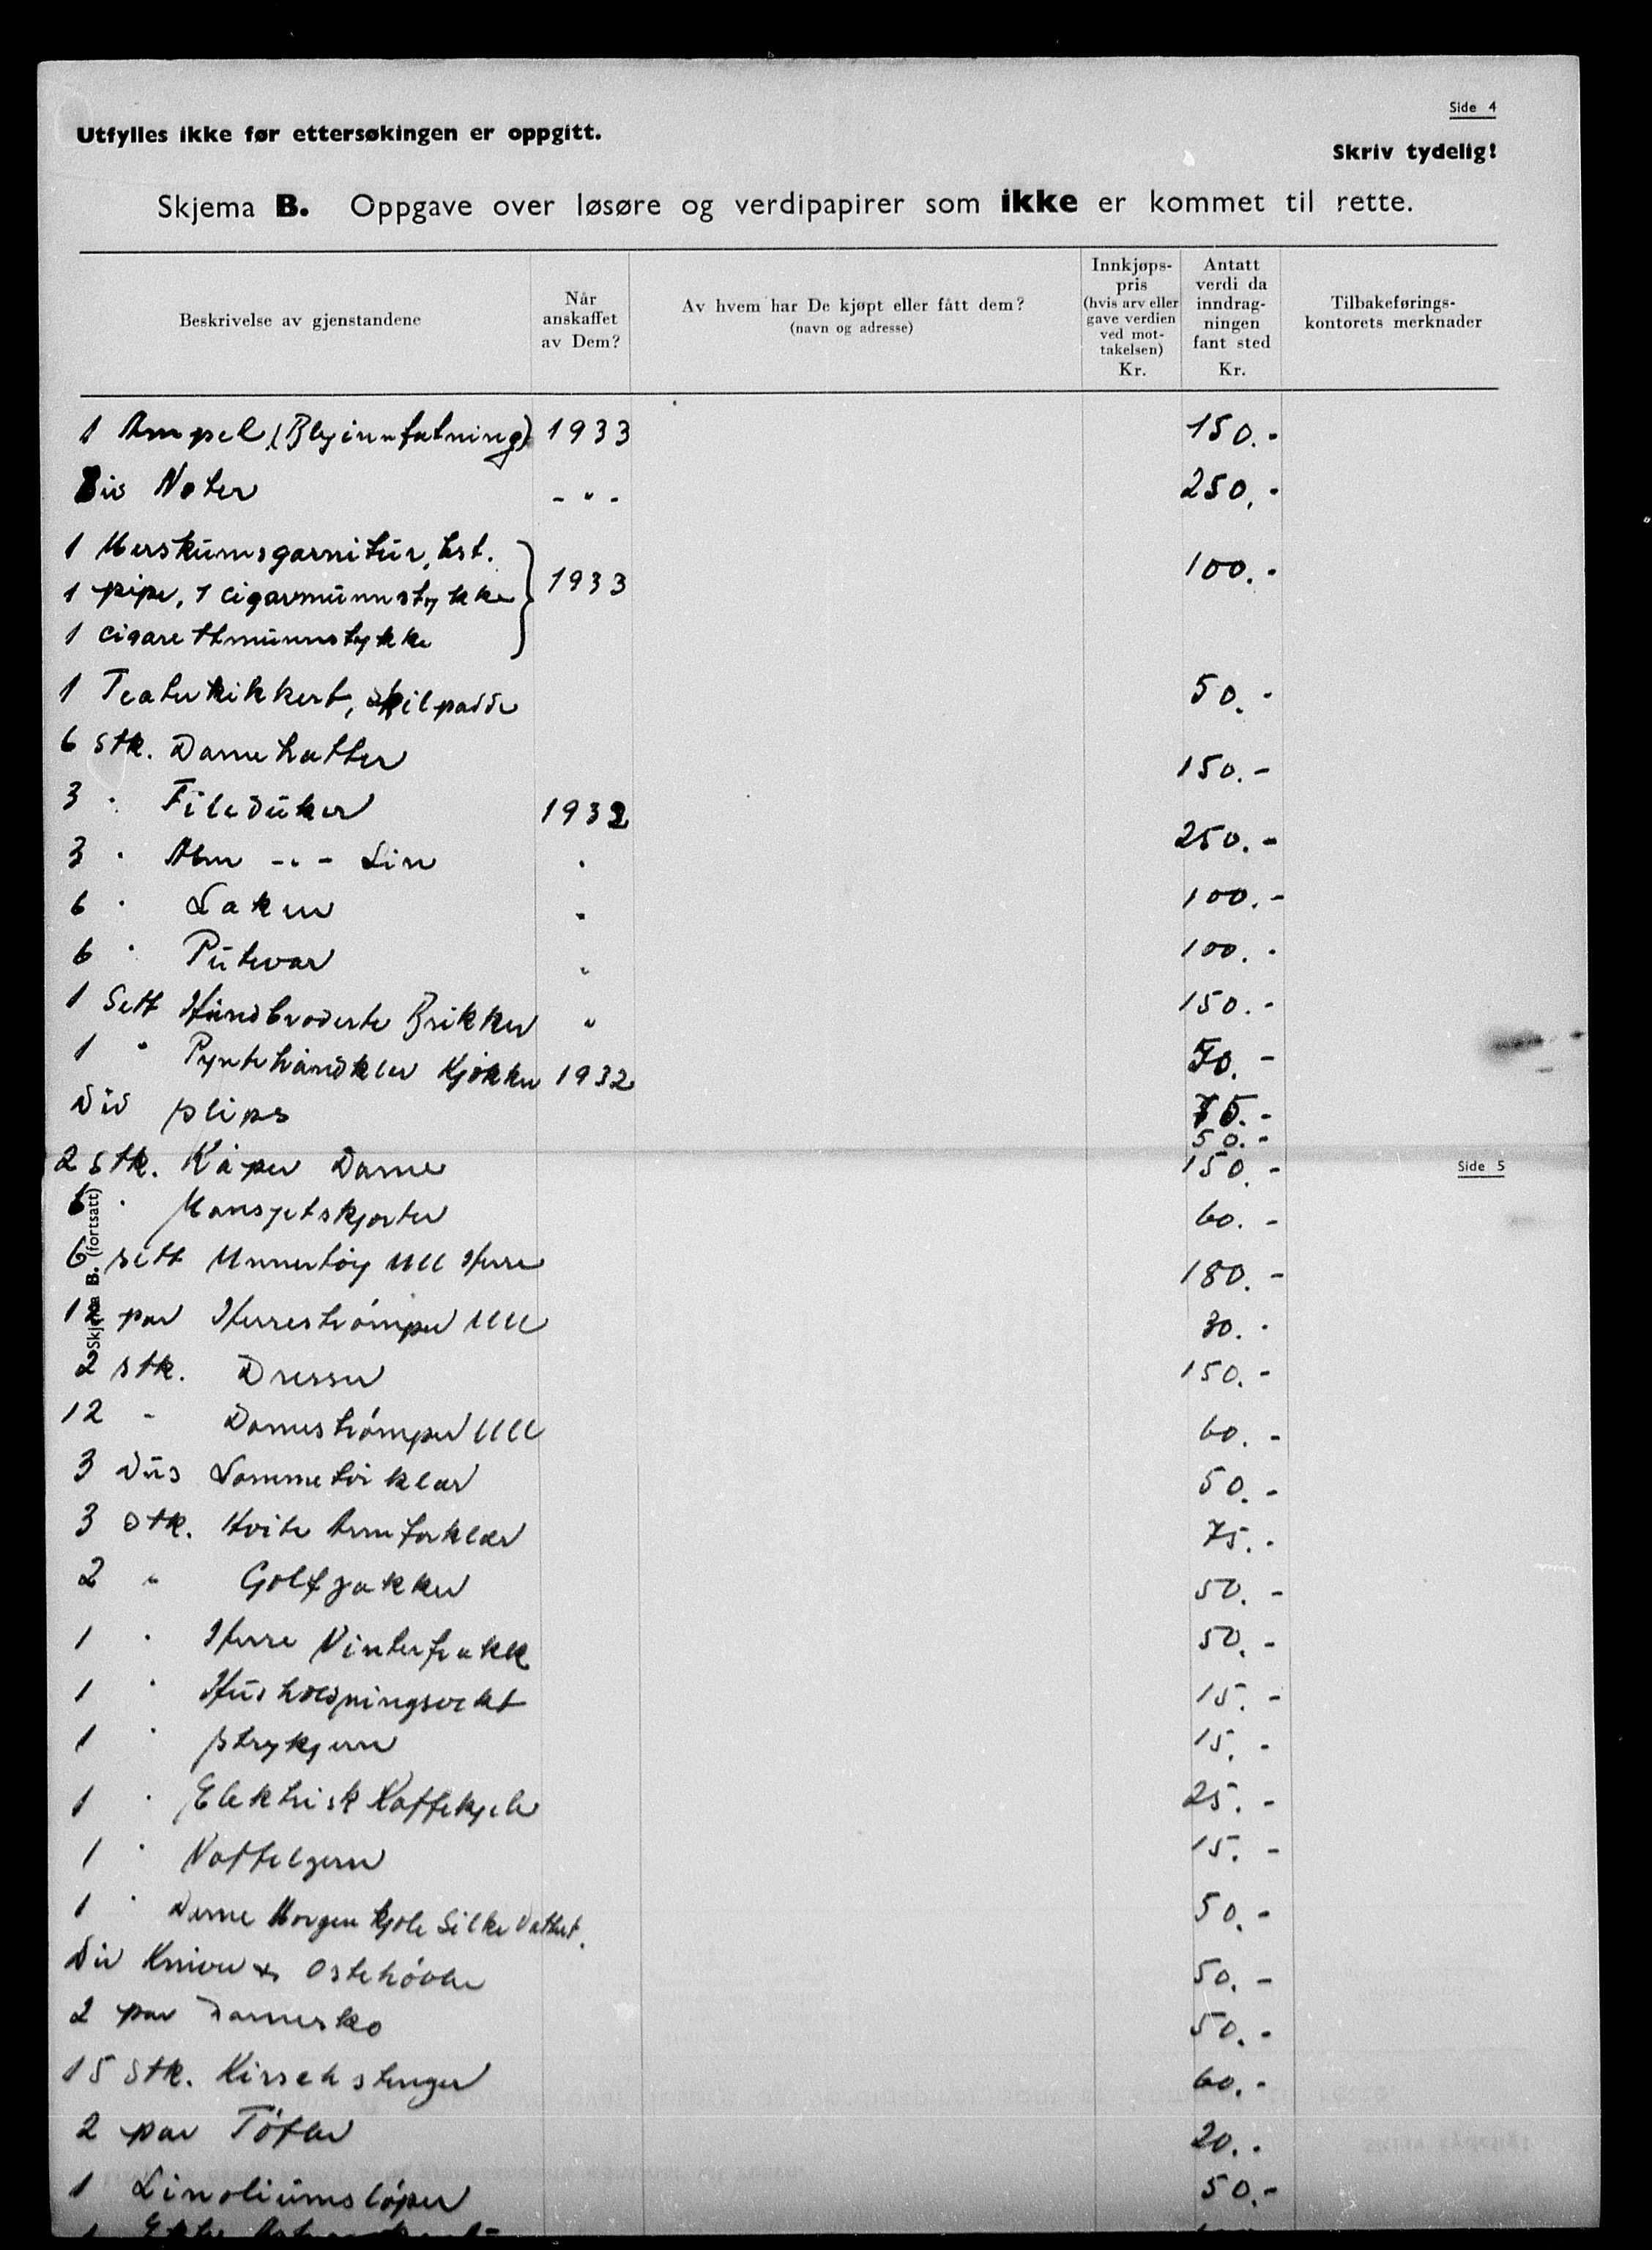 Side 4
Utfylles ikke før ettersøkingen er oppgitt.
Skriv tydelig!
Skjema B. Oppgave over løsøre og verdipapirer som ikke er kommet til rette.
Beskrivelse av gjenstandene
Når anskaffet av Dem?
Av hvem har De kjøpt eller fått dem? (navn og adresse)
Innkjøps-pris (hvis arv eller gave verdien ved mot-takelsen) Kr.
Antatt verdi da inndrag-ningen fant sted Kr.
Tilbakeførings-kontorets merknader
1 Ampel (Blyinnfatning) 1933 150.-
Div Noter - " - 250.-
1 Merskumsgarnitur, best.
1 pipe, 1 cigarmunnstykke 1933 100.-
1 cigarettmunnstykke
1 Teaterkikkert, skilpadde 50.-
6 stk. Damehatter 150.-
3 " Fileduker 1932 250.-
3 " - " - Lin " 
6 " Laken " 100.-
6 " Putevar " 100.-
1 Sett Håndbroderte Brikker " 150.-
1 " Pyntehåndklær Kjøkken 1932 50.-
Div slips 75.-
50.-
2 stk. Kåper Dame 150.-
Side 5
Skjema B. (fortsatt)
6 " Mansjetskjorter 60.-
6 sett Unnertöig Ull Herre 180.-
12 par Herreströmper Ull 30.-
2 stk. Dresser 150.-
12 - Dameströmper Ull 60.-
3 dus Lommetörklær 50.-
3 stk. Hvite Armforklær 75.-
2 " Golfjakker 50.-
1 " Herre Vinterfrakk 50.-
1 " Husholdningsvekt 15.-
1 " strykjern 15.-
1 " Elektrisk Kaffekjele 25.-
1 " Vaffeljern 15.-
1 " Dame Morgenkjole Silke Vattert. 50.-
Div Kniver & Ostehövler 50.-
2 par Damesko 50.-
15 Stk. Kirschstenger 60.-
2 par Töfler 20.-
1 Linoliumslöper 50.-